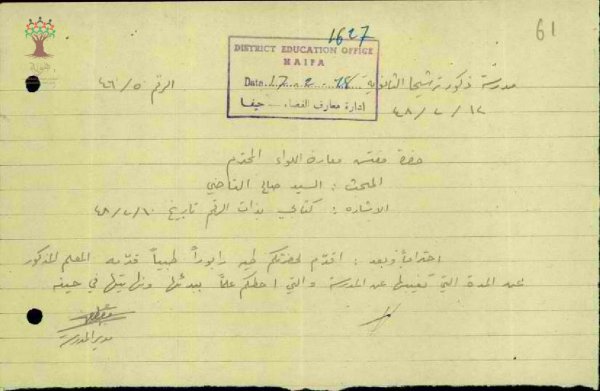 61
1627
DISTRICT EDUCATION OFFICE
HAIFA
Date 17-2-48
ادارة معارف القضاء - حيفا
هوية
مدرسة ذكور ترشيحا الثانوية
الرقم ٥/٤٦
١٢/٢/٤٨
حضرة مفتش معارف اللواء المحترم
المبحث : السيد صالح القاضي
الاشارة : كتابي بذات الرقم تاريخ ١٠/٢/٤٨
احتراماً وبعد : اقدّم لحضرتكم طيه رابوراً طبياً قدّمه المعلم المذكور
عند المدة التي تغيبها عن المدرسة والتي احطكم علماً ببدئها ونهايتها في حينه
مدير المدرسة